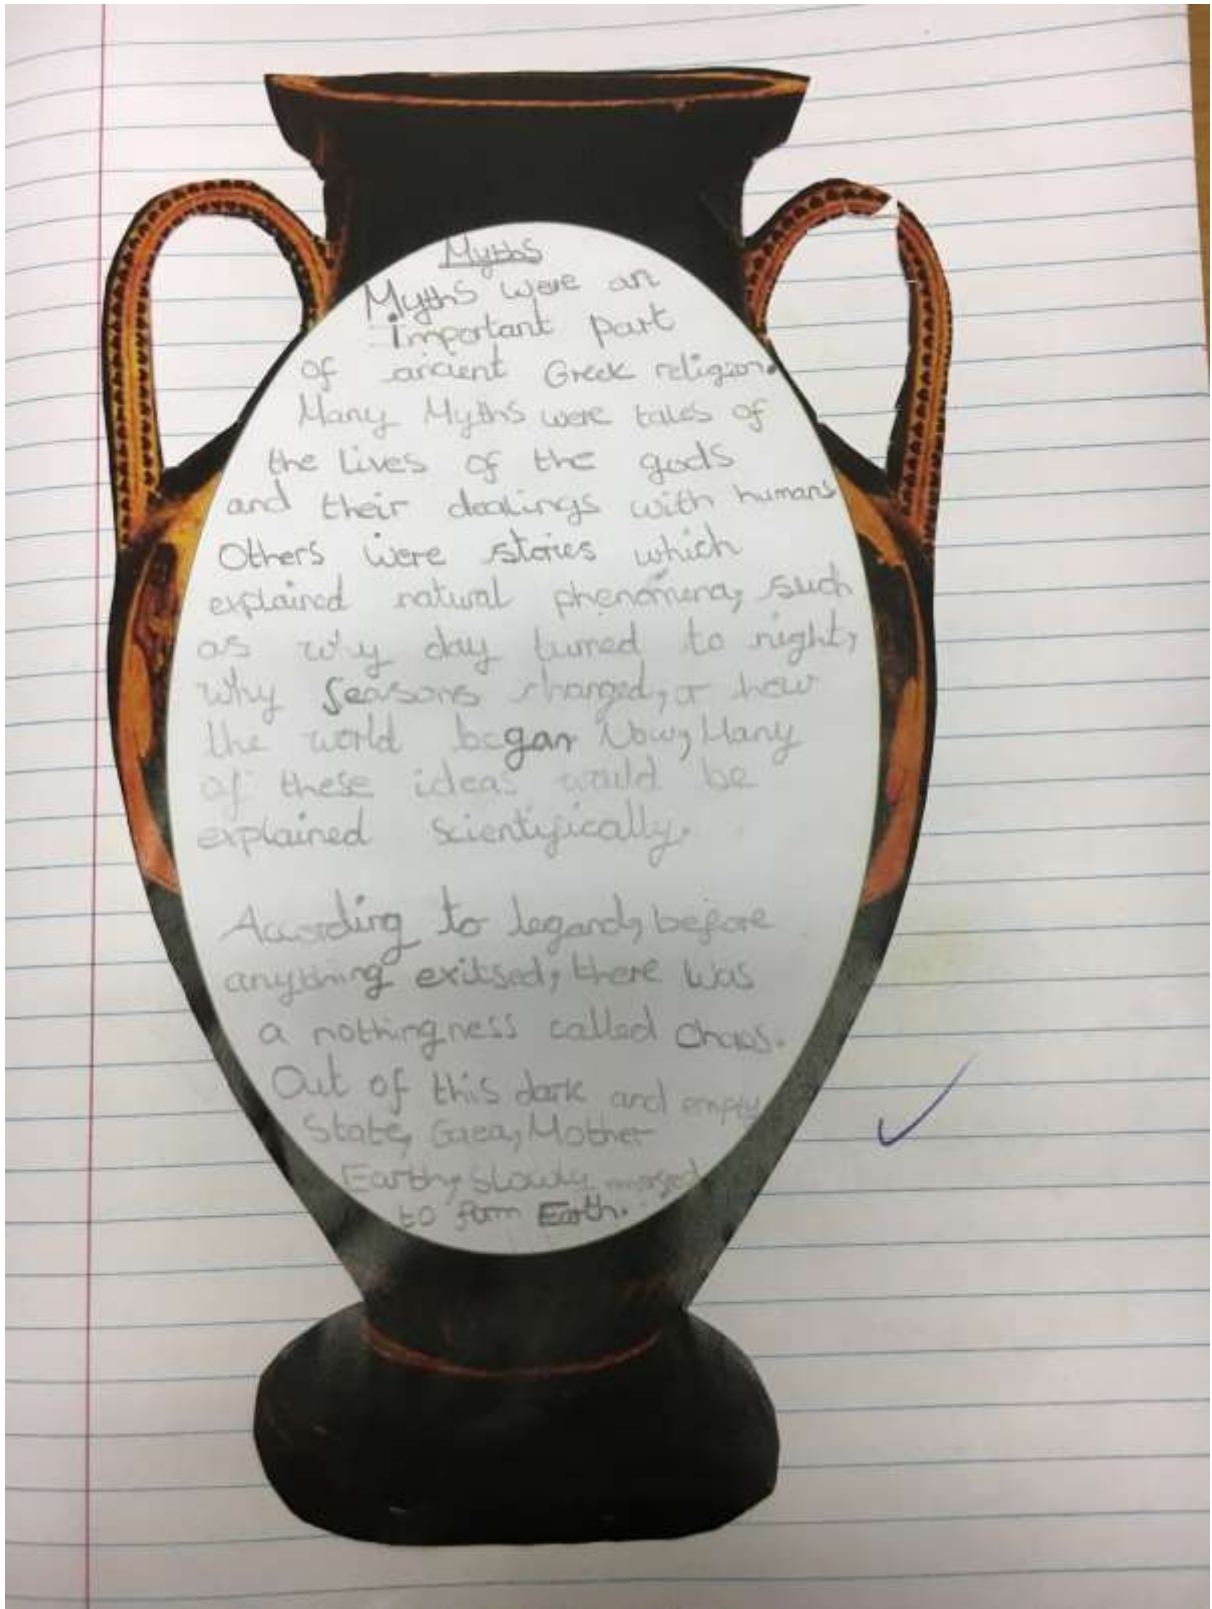 Myths
Myths were an
important part
of ancient Greek religion.
Many Myths were tales of
the lives of the gods
and their dealings with humans
Others were stories which
explained natural phenomena, such
as why day turned to night,
why seasons changed, or how
the world began Now, Many
of these ideas would be
explained scientifically.
According to legand, before
anything exitsed, there was
a nothingness called Chaos.
Out of this dark and empty
State, Gaea, Mother
Earth, slowly emerged
to form Earth.